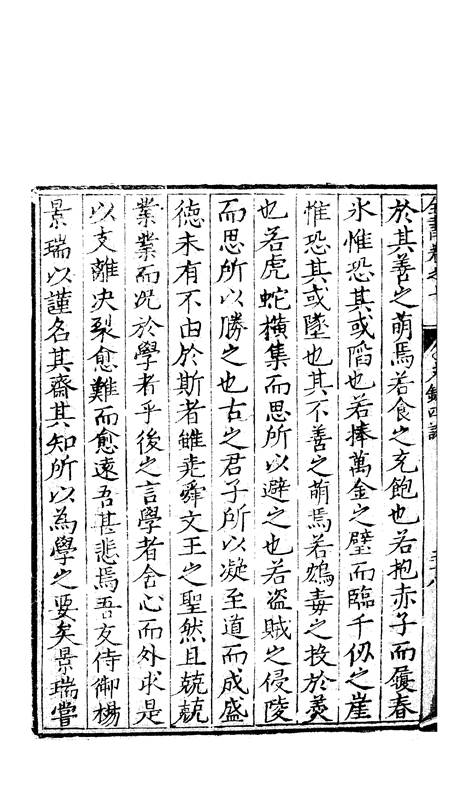 於其善之萌焉若食之充飽也若抱赤子而履春
氷惟恐其或陷也若捧萬金之璧而臨千仭之崖
惟恐其或墜也其不善之萌焉若鴆毒之投於羮
也若虎蛇橫集而思所以避之也若盗賊之侵陵
而思所以勝之也古之君子所以凝至道而成盛
徳未有不由於斯者雖堯舜文王之聖然且兢兢
業業而况於學者乎後之言學者舍心而外求是
以支離决裂愈難而愈遠吾甚悲焉吾友侍御楊
景瑞以謹名其齋其知所以為學之要矣景瑞嘗